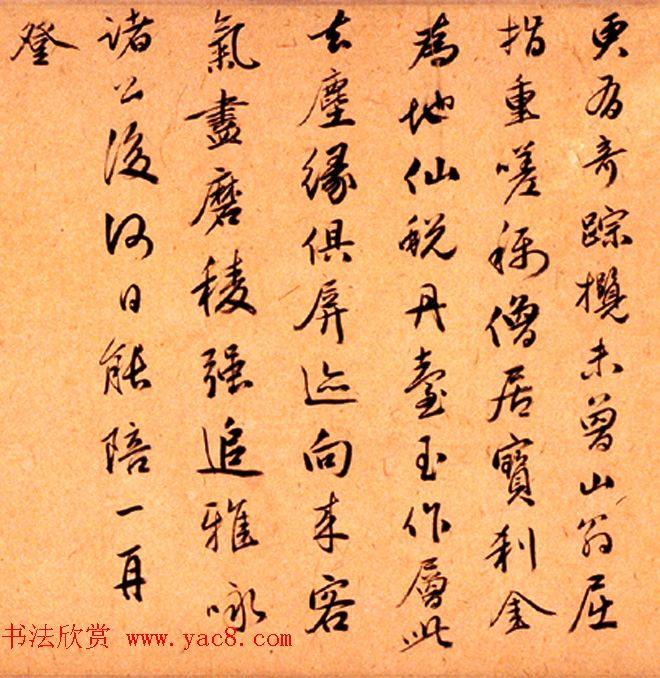 更有奇踪櫕未曾山翁屈
指重嗟稱僧居寶刹金
為地仙蛻丹臺玉作層此
去塵緣俱屏迹向來客
氣盡磨稜强追雅咏
諸公後何日能陪一再
登
书法欣赏 www.yac8.com